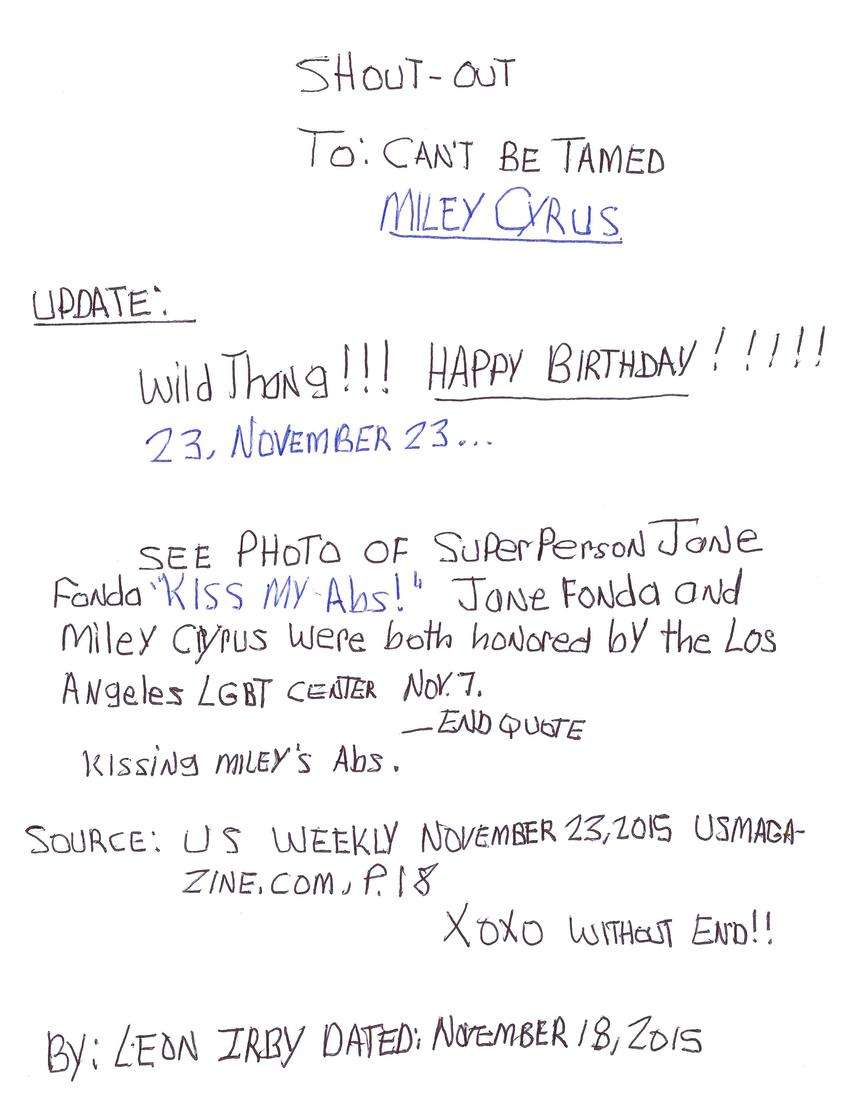 SHOUT-OUT
TO: CAN'T BE TAMED
MILEY CYRUS
UPDATE:
Wild Thang!!! HAPPY BIRTHDAY!!!!!
23, NOVEMBER 23...
SEE PHOTO OF SuperPerson Jane
Fonda "KISS MY Abs!" Jane Fonda and
Miley Cyrus were both honored by the Los
Angeles LGBT CENTER NOV. 7.
—END QUOTE
Kissing MILEY'S Abs.
SOURCE: US WEEKLY NOVEMBER 23, 2015 USMAGA-
ZINE.COM, P. 18
XOXO WITHOUT END!!
BY: LEON IRBY DATED: NOVEMBER 18, 2015